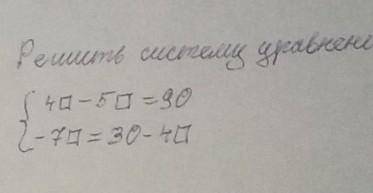 Решить систему уравнени
{ 4□ - 5□ = 90
- 7□ = 30 - 4□